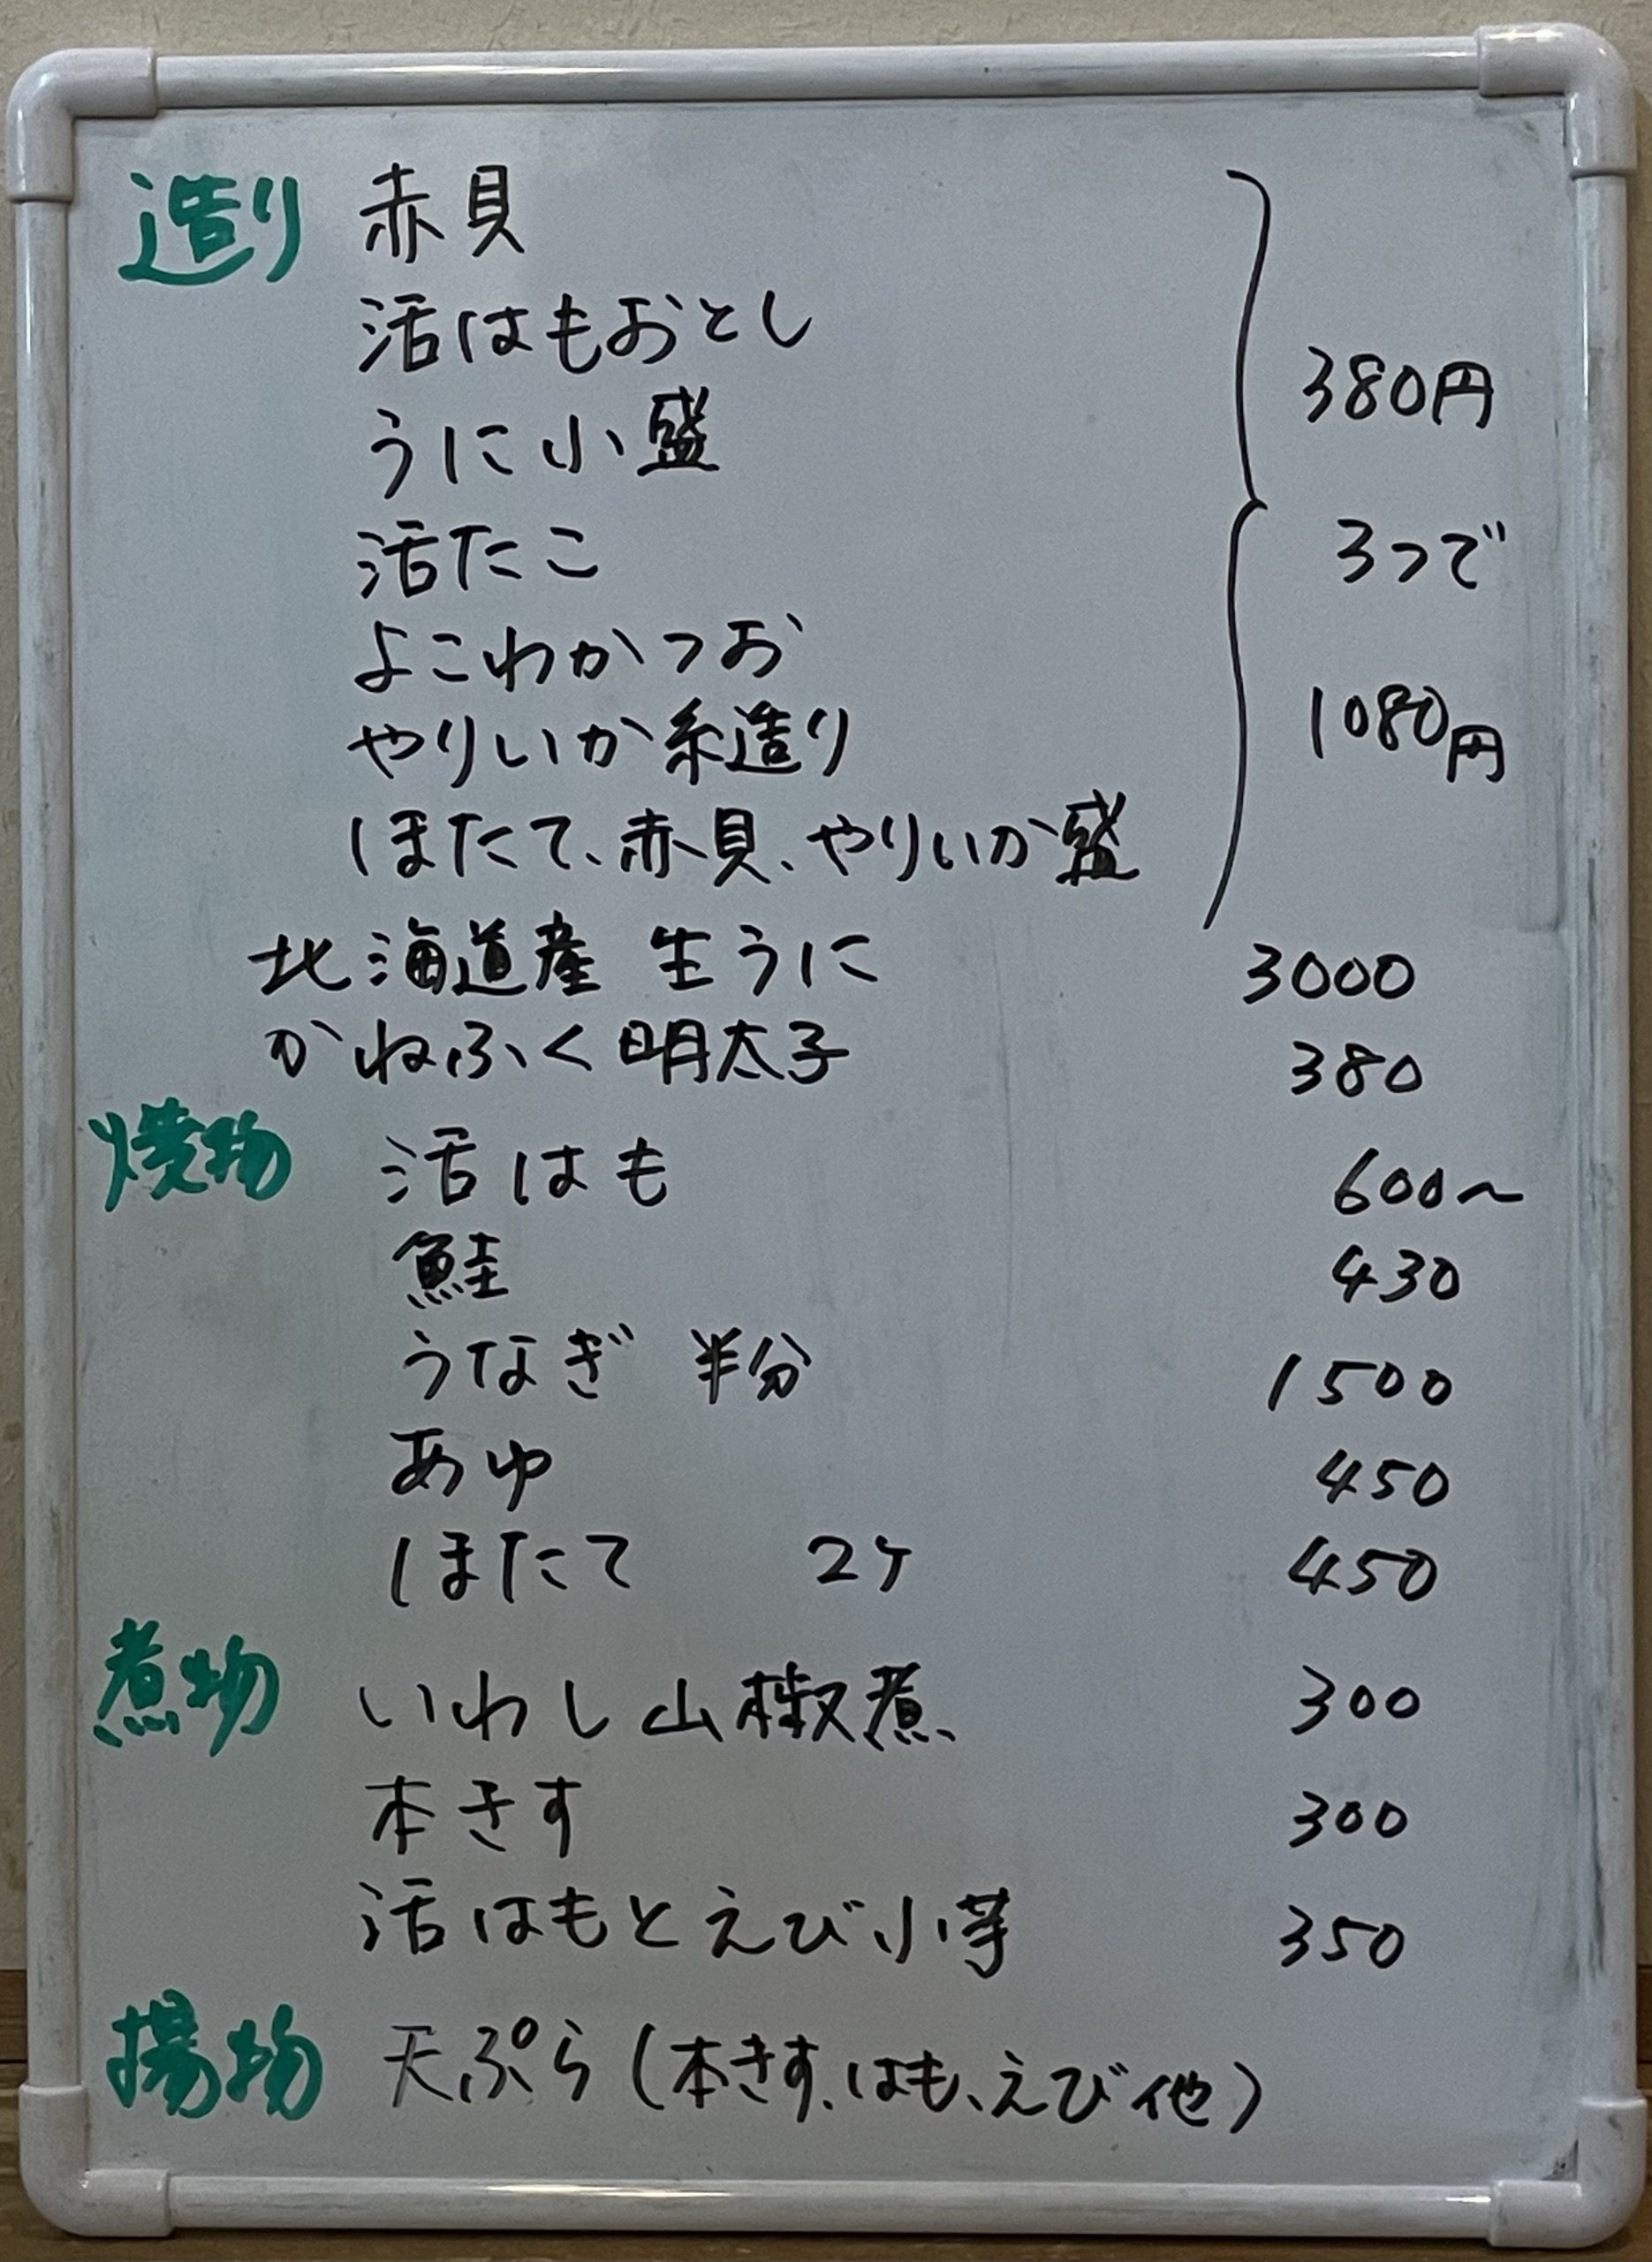 造り 赤貝
活はもおとし
うに小盛
活たこ
よこわかつお
やりいか糸造り
ほたて、赤貝、やりいか盛
380円
3つで
1080円
北海道産 生うに 3000
かねふく明太子 380
焼物 活はも 600〜
鮭 430
うなぎ 半分 1500
あゆ 450
ほたて 2ケ 450
煮物 いわし山椒煮 300
本きす 300
活はもとえび小芋 350
揚物 天ぷら(本きす、はも、えび他)